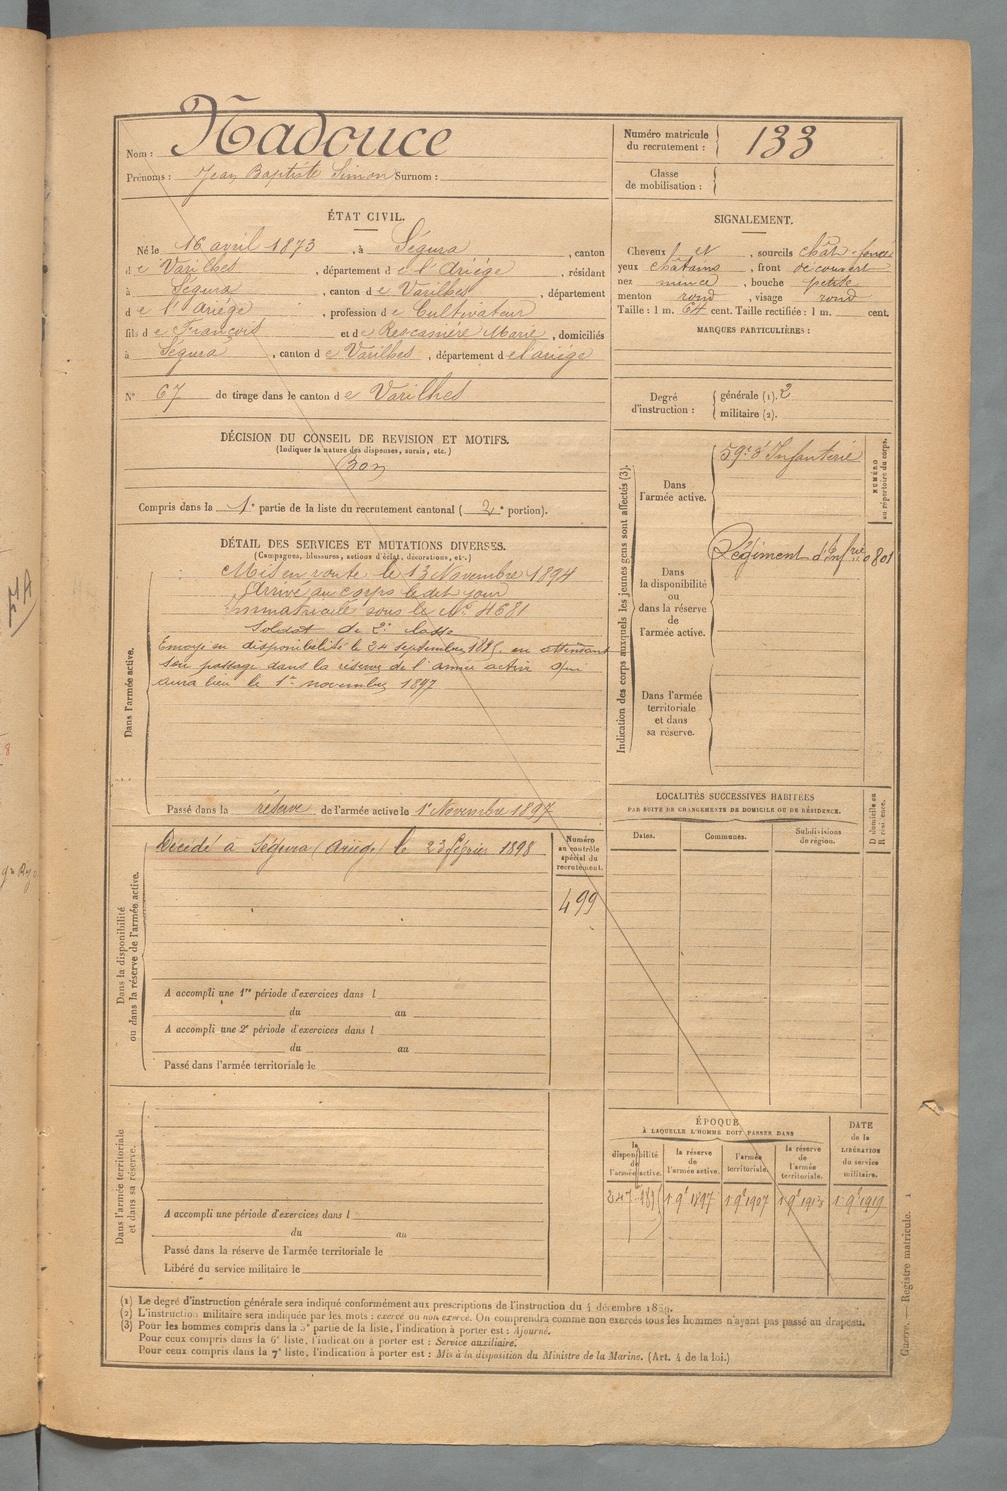 Nom : Nadouce
Prénoms : Jean Baptiste Simon Surnom :
Numéro matricule du recrutement : 133
Classe de mobilisation :
ÉTAT CIVIL.
Né le 16 avril 1873, à Ségura, canton
de Varilhes, département de l'Ariège, résidant
à Ségura, canton de Varilhes, département
de l'Ariège, profession de Cultivateur
fils de François et de Rescanière Marie, domiciliés
à Ségura, canton de Varilhes, département de l'ariège
N° 67 de tirage dans le canton de Varilhes
SIGNALEMENT.
Cheveux et, sourcils chât. foncé
yeux châtains, front découvert
nez mince, bouche petite
menton rond, visage rond
Taille : 1 m. 64 cent. Taille rectifiée : 1 m. cent.
MARQUES PARTICULIÈRES :
Degré d'instruction : générale (1). 2
militaire (2).
DÉCISION DU CONSEIL DE REVISION ET MOTIFS.
(Indiquer la nature des dispenses, sursis, etc.)
Bon
Compris dans la 1e partie de la liste du recrutement cantonal (2e portion).
DÉTAIL DES SERVICES ET MUTATIONS DIVERSES.
(Campagnes, blessures, actions d'éclat, décorations, etc.)
Dans l'armée active.
Mis en route le 13 Novembre 1894
Arrivé au corps le dit jour
Immatriculé sous le N° 4681
Soldat de 2e classe
Envoyé en disponibilité le 24 septembre 1895, en attendant
son passage dans la réserve de l'armée active qui
aura lieu le 1er novembre 1897
Passé dans la réserve de l'armée active le 1er Novembre 1897
Indication des corps auxquels les jeunes gens sont affectés (3).
NUMÉRO au répertoire du corps.
Dans l'armée active.
59e d'Infanterie
Dans la disponibilité ou dans la réserve de l'armée active.
Régiment d'Infrie 0801
Dans l'armée territoriale et dans sa réserve.
LOCALITÉS SUCCESSIVES HABITÉES
PAR SUITE DE CHANGEMENTS DE DOMICILE OU DE RÉSIDENCE.
D domicile ou R résidence.
Dates. Communes. Subdivisions de région.
Dans la disponibilité ou dans la réserve de l'armée active.
Décédé à Ségura (Ariège) le 23 février 1898
Numéro au contrôle spécial du recrutement.
499
A accompli une 1re période d'exercices dans l
du au
A accompli une 2e période d'exercices dans l
du au
Passé dans l'armée territoriale le
Dans l'armée territoriale et dans sa réserve.
A accompli une période d'exercices dans l
du au
Passé dans la réserve de l'armée territoriale le
Libéré du service militaire le
ÉPOQUE
À LAQUELLE L'HOMME DOIT PASSER DANS
la disponibilité de l'armée active.
la réserve de l'armée active.
l'armée territoriale.
la réserve de l'armée territoriale.
DATE de la LIBÉRATION du service militaire.
24 7 1895
1 9e 1897
1 9e 1907
1 9e 1913
1 9e 1919
(1) Le degré d'instruction générale sera indiqué conformément aux prescriptions de l'instruction du 4 décembre 1889.
(2) L'instruction militaire sera indiquée par les mots : exercé ou non exercé. On comprendra comme non exercés tous les hommes n'ayant pas passé au drapeau.
(3) Pour les hommes compris dans la 5e partie de la liste, l'indication à porter est : Ajourné.
Pour ceux compris dans la 6e liste, l'indication à porter est : Service auxiliaire.
Pour ceux compris dans la 7e liste, l'indication à porter est : Mis à la disposition du Ministre de la Marine. (Art. 4 de la loi.)
Guerre. — Registre matricule. 1